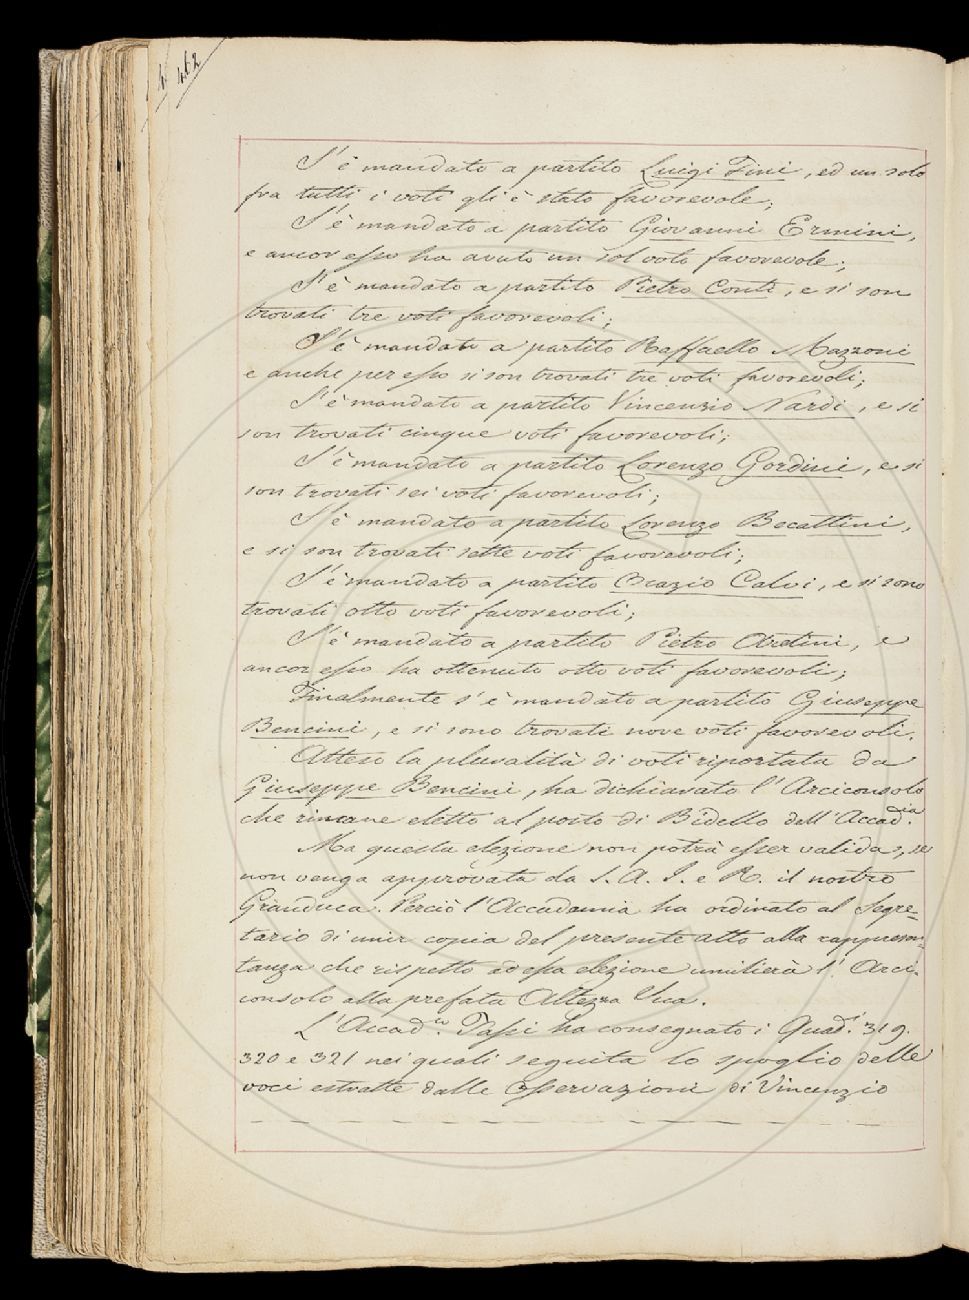 462
S'è mandato a partito Luigi Fini, ed un solo
fra tutti i voti gli è stato favorevole;
S'è mandato a partito Giovanni Ermini,
e ancor esso ha avuto un sol voto favorevole;
S'è mandato a partito Pietro Conti, e si son
trovati tre voti favorevoli;
S'è mandato a partito Raffaello Mazzoni
e anche per esso si son trovati tre voti favorevoli;
S'è mandato a partito Vincenzio Nardi, e si
son trovati cinque voti favorevoli;
S'è mandato a partito Lorenzo Gordini, e si
son trovati sei voti favorevoli;
S'è mandato a partito Lorenzo Becattini,
e si son trovati sette voti favorevoli;
S'è mandato a partito Orazio Calvi, e si sono
trovati otto voti favorevoli;
S'è mandato a partito Pietro Aretini, e
ancor esso ha ottenuto otto voti favorevoli;
Finalmente s'è mandato a partito Giuseppe
Bencini, e si sono trovati nove voti favorevoli.
Atteso la pluralità di voti riportata da
Giuseppe Bencini, ha dichiarato l'Arciconsolo
che rimane eletto al posto di Bidello dell'Accad.ia
Ma questa elezione non potrà esser valida, se
non venga approvata da S. A. I. e R. il nostro
Granduca. Perciò l'Accademia ha ordinato al Segre-
tario di unir copia del presente atto alla rappresen-
tanza che rispetto ad essa elezione umilierà l'Arci-
consolo alla prefata Altezza Sua.
L'Accad.co Tassi ha consegnato i Quad.i 319.
320 e 321 nei quali seguita lo spoglio delle
voci estratte dalle Osservazioni di Vincenzio